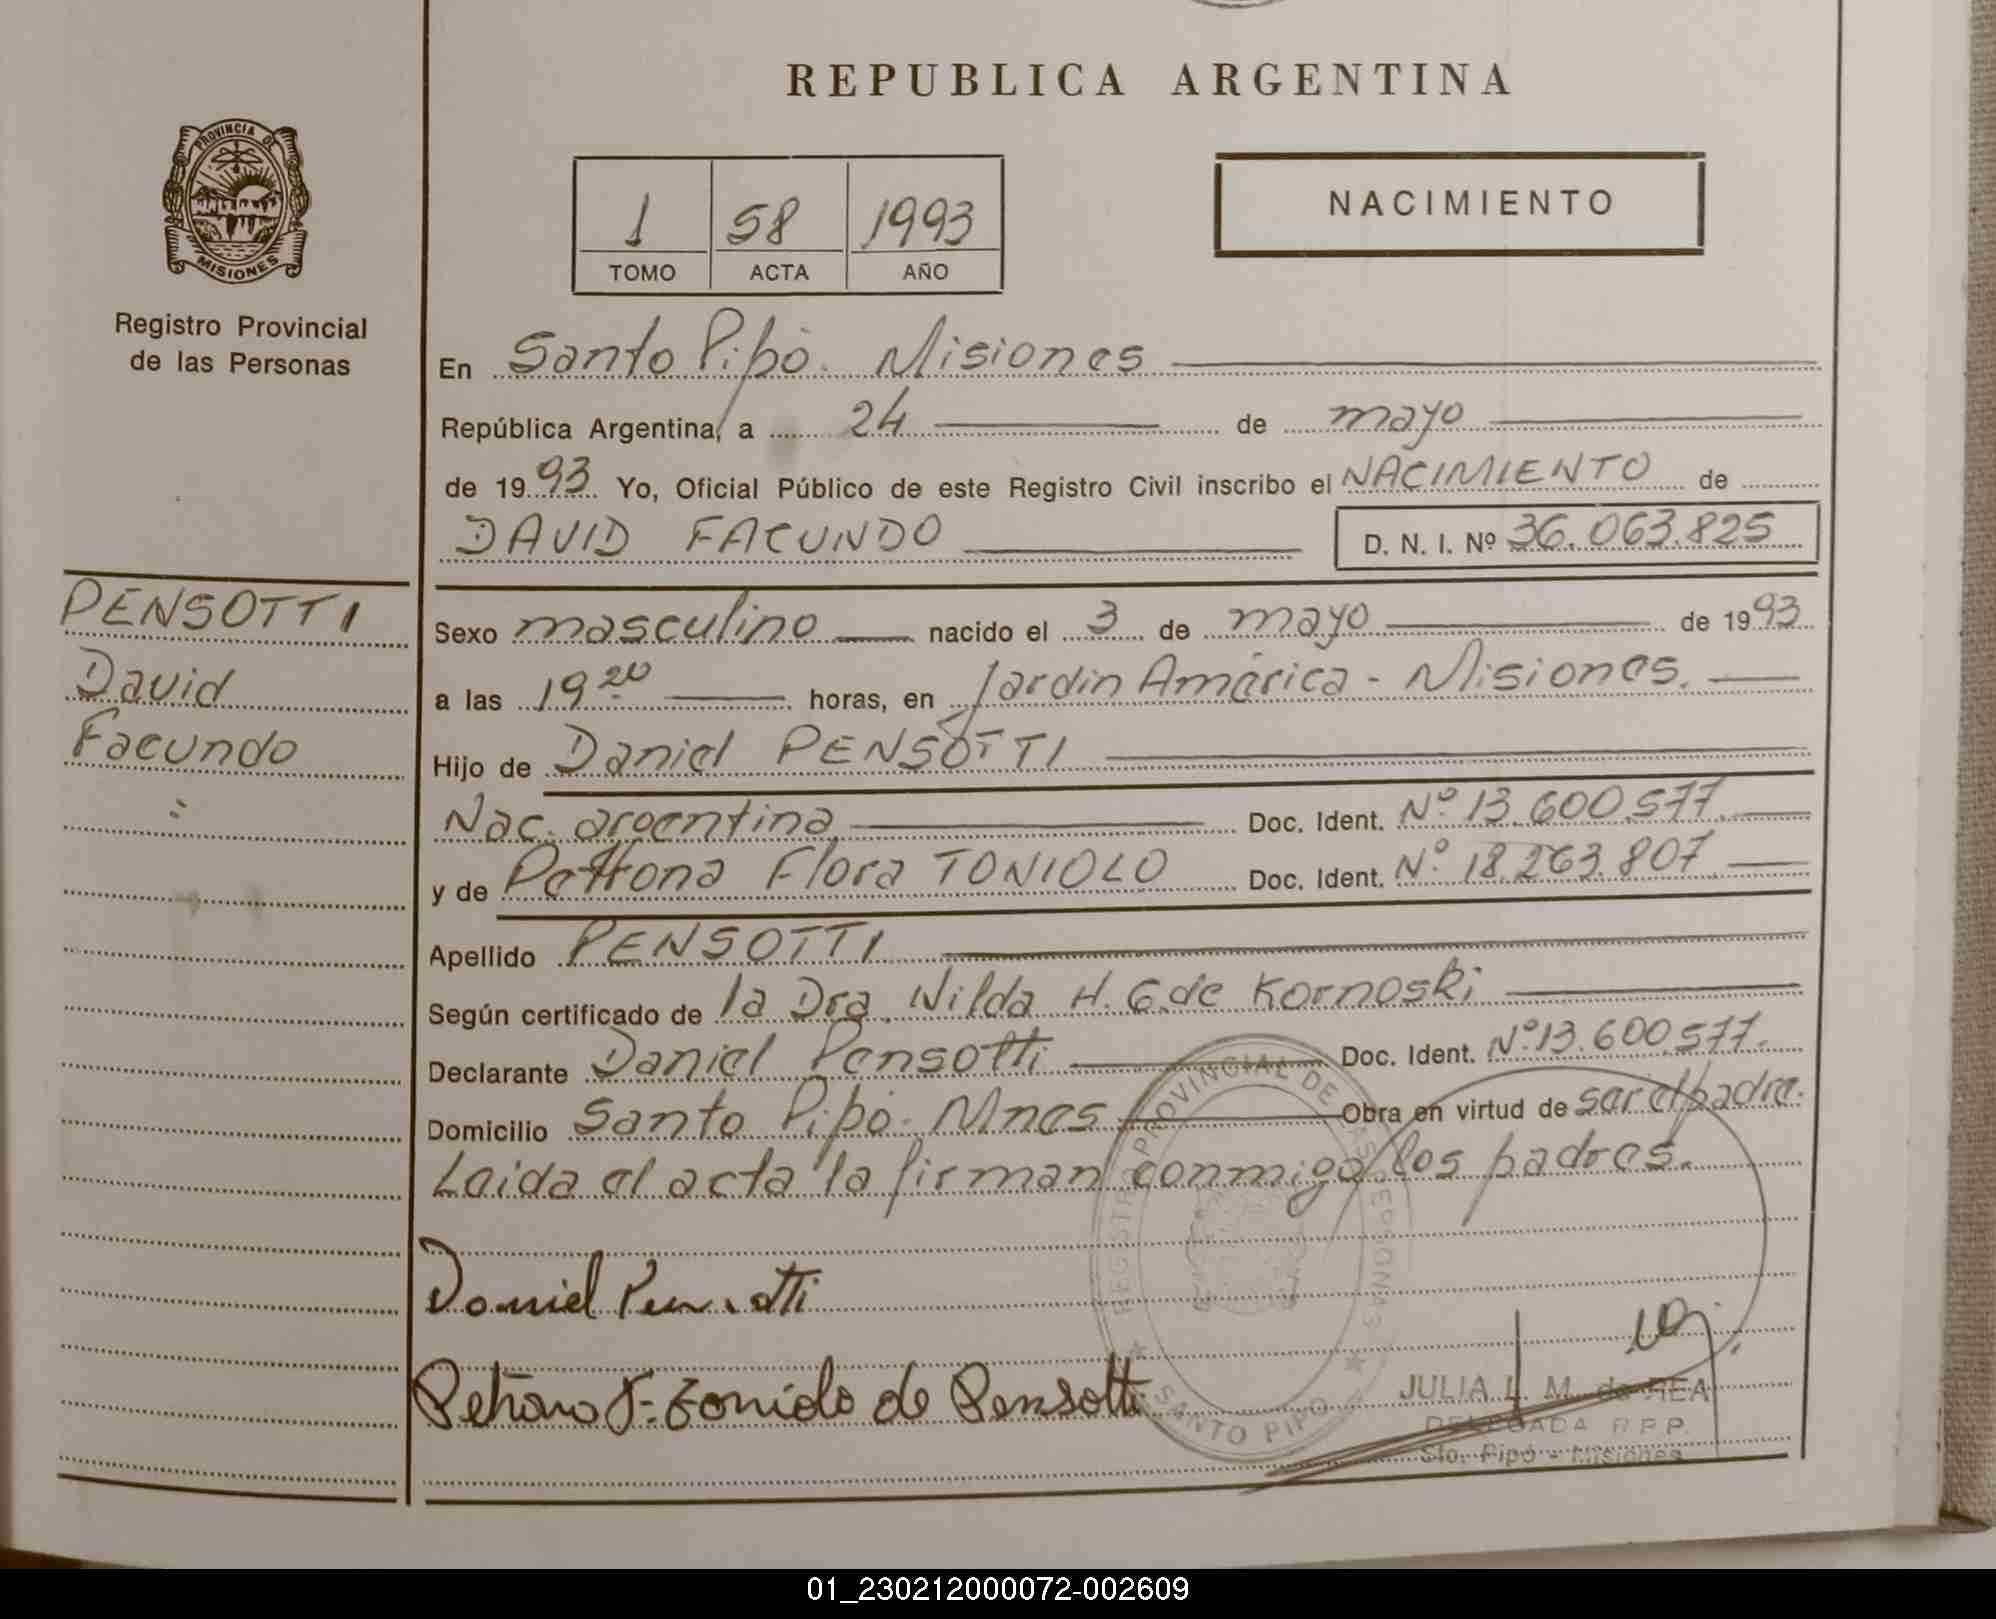 REPUBLICA ARGENTINA
PROVINCIA DE
MISIONES
Registro Provincial
de las Personas
1 58 1993
TOMO ACTA AÑO
NACIMIENTO
En Santo Pipó. Misiones
República Argentina, a 24 de mayo
de 1993 Yo, Oficial Público de este Registro Civil inscribo el NACIMIENTO de
DAVID FACUNDO D. N. I. Nº 36.063.825
PENSOTTI
David
Facundo
Sexo masculino nacido el 3 de mayo de 1993
a las 19 20 horas, en Jardin América - Misiones.
Hijo de Daniel PENSOTTI
Nac. argentina Doc. Ident. Nº 13.600.577.
y de Petrona Flora TONIOLO Doc. Ident. Nº 18.263.807
Apellido PENSOTTI
Según certificado de la Dra. Nilda H. G. de Kornoski
Declarante Daniel Pensotti Doc. Ident. Nº 13.600.577.
Domicilio Santo Pipó. Mnes Obra en virtud de ser el padre.
Leida el acta la firman conmigo los padres.
REGISTRO PROVINCIAL DE LAS PERSONAS
SANTO PIPO
Daniel Pensotti
Petrona F. Toniolo de Pensotti
JULIA L. M. de REA
DELEGADA R.P.P.
Sto. Pipó - Misiones
01_230212000072-002609